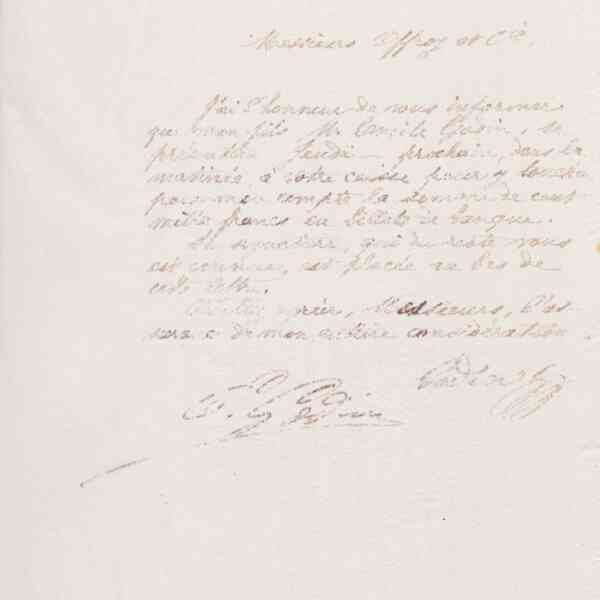 Messieurs Offroy et Cie.
J'ai l'honneur de vous informer
que mon fils M. Emile Godin, se
présentera Jeudi prochain, dans la
matinée, à votre caisse pour y toucher
pour mon compte la somme de cent
mille francs en billets de banque.
Sa signature, qui du reste vous
est connue, est placée au bas de
cette lettre.
Veuillez agréer, Messieurs, l'as-
surance de mon entière considération.
Godin
Godin